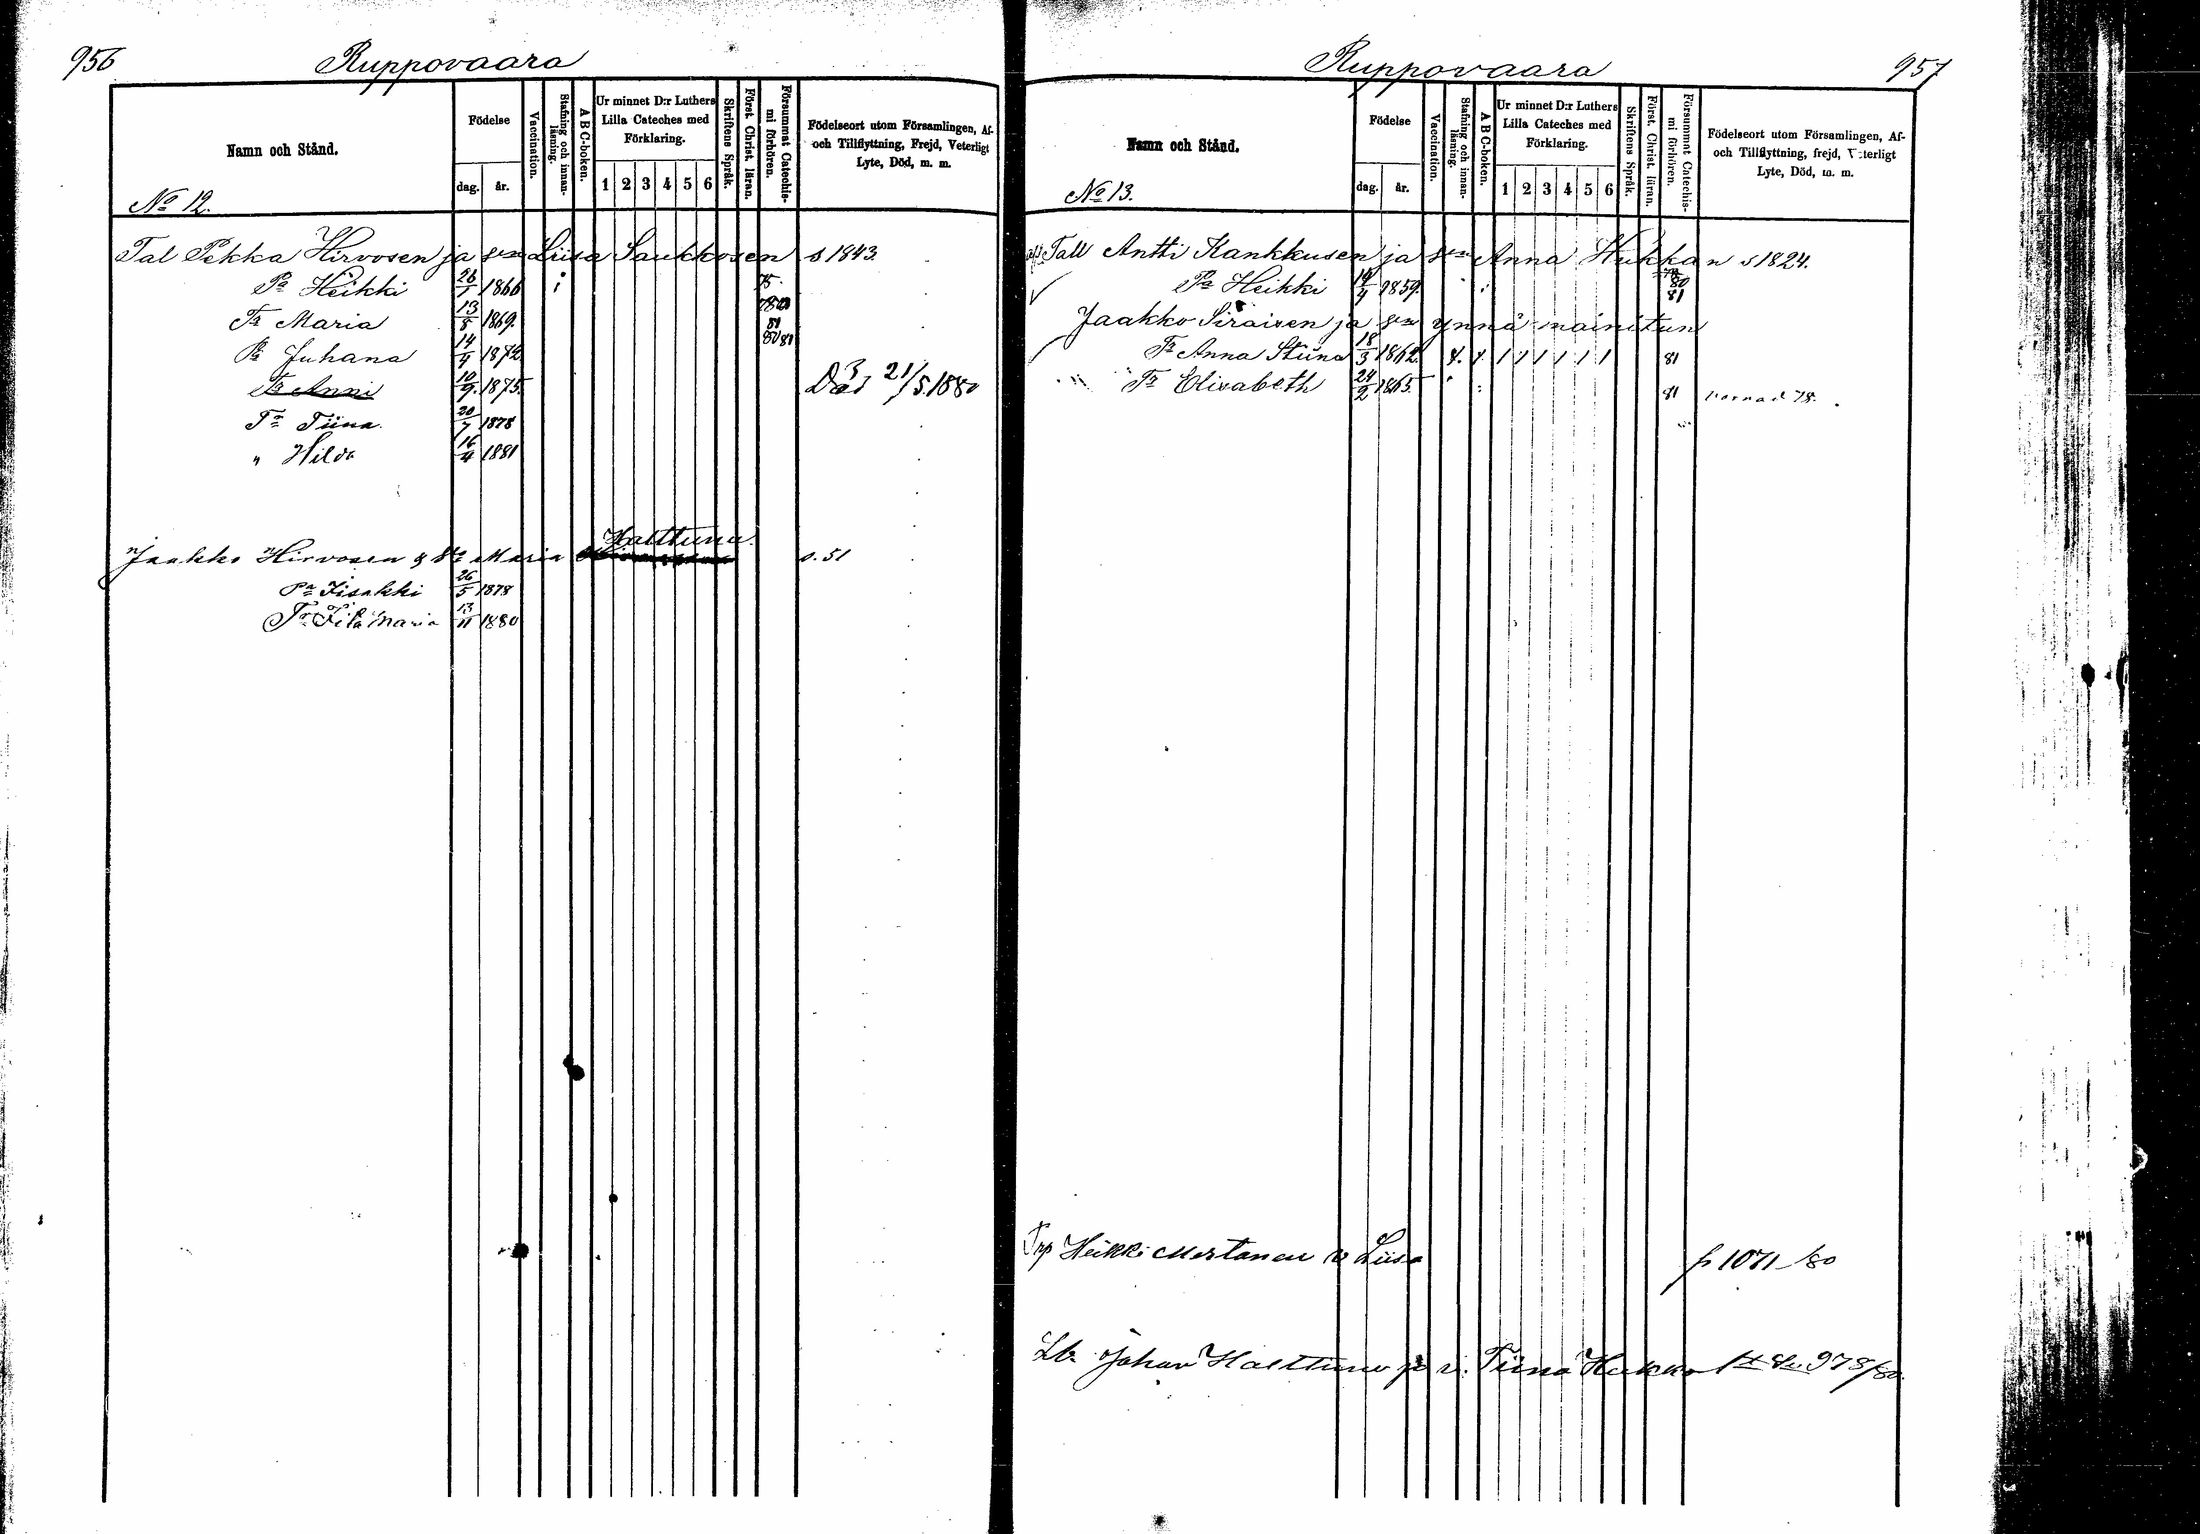 956
Ruppovaara
Namn och Stånd.
Födelse
dag. år.
Vaccination.
Stafning och innan-läsning.
A B C-boken.
Ur minnet D:r Luthers Lilla Cateches med Förklaring.
1 2 3 4 5 6
Skriftens Språk.
Först. Christ. läran.
Försummat Catechis-mi förhören.
Födelseort utom Församlingen, Af- och Tillflyttning, Frejd, Veterligt Lyte, Död, m. m.
No 12.
Tal Pekka Hirvosen ja sen Liisa Saukkosen s 1843
Pa Heikki 26/1 1866 i 75
Tr Maria 13/8 1869. 81
Pa Juhana 14/4 1872 80 81
Tr Anni 10/9 1875. Död 21/5 1880
Tr Tiina. 20/7 1878
" Hilda 16/4 1881
Halttunen
Jaakko Hirvosen & Maria s. 51
Pa Iisakki 26/5 1878
Tr Maria 13/11 1880
957
Ruppovaara
Namn och Stånd.
Födelse
dag. år.
Vaccination.
Stafning och innan-läsning.
A B C-boken.
Ur minnet D:r Luthers Lilla Cateches med Förklaring.
1 2 3 4 5 6
Skriftens Språk.
Först. Christ. läran.
Försummat Catechis-mi förhören.
Födelseort utom Församlingen, Af- och Tillflyttning, frejd, Veterligt Lyte, Död, m. m.
No 13.
Tall Antti Kankkusen ja sen Anna Hukkan s 1824.
Pa Heikki 1859. 80 81
Jaakko Siraisen ja sen ynnä mainitun
Tr Anna Stiina 18/3 1862 1 1 1 1 1 1 81
Tr Elisabeth 24/2 1865 81
Heikki Mertanen v Liisa p 1071/80
Johan Halttunen v. Tiina Hukka 978/80